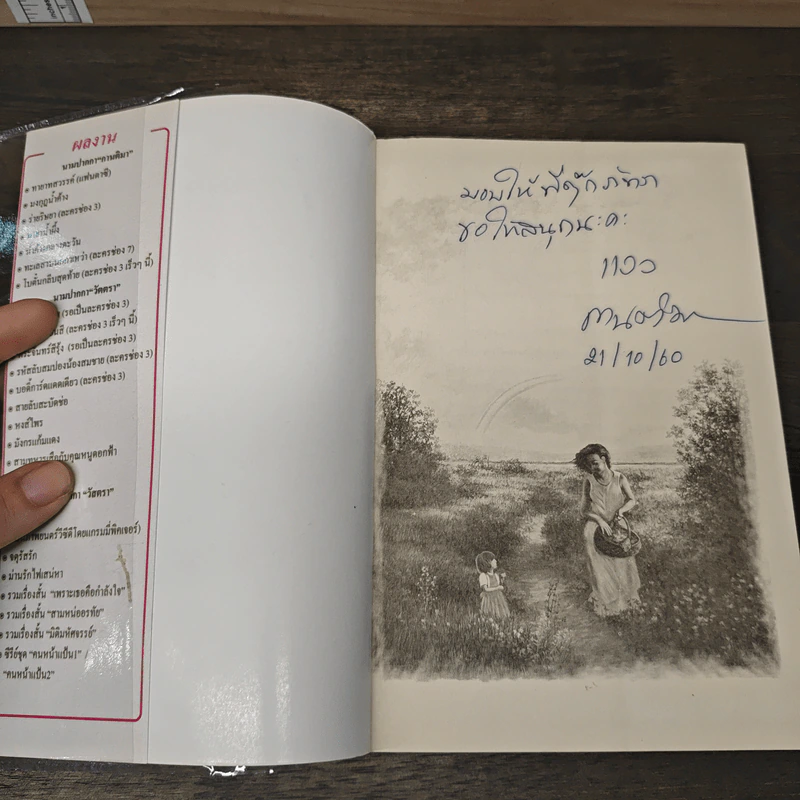 ผลงาน
นามปากกา"กานติมา"
● ทายาทสวรรค์ (แฟนตาซี)
● มงกุฎน้ำค้าง
● ร่ายริษยา (ละครช่อง 3)
● ทะเลสาบนกกาเหว่า (ละครช่อง 7)
● ใบตั้นกลีบสุดท้าย (ละครช่อง 3 เร็วๆ นี้)
นามปากกา"วัตตรา"
(รอเป็นละครช่อง 3)
(ละครช่อง 3 เร็วๆ นี้)
(รอเป็นละครช่อง 3)
● รหัสลับสมปองน้องสมชาย (ละครช่อง 3)
● บอดี้การ์ดแดดเดียว (ละครช่อง 3)
● สายลับสะบัดช่อ
● หงส์ไพร
● มังกรแก้มแดง
"วัสตรา"
● จตุรัสรัก
● ม่านรักไฟเสน่หา
● รวมเรื่องสั้น "เพราะเธอคือกำลังใจ"
● รวมเรื่องสั้น "สามหน่ออรทัย"
● รวมเรื่องสั้น "มิติมหัศจรรย์"
● ซีรีย์ชุด "คนหน้าแป้น1" /
"คนหน้าแป้น2"
มอบให้ พี่ตุ๊ก
ขอให้สนุกนะคะ
21/10/60